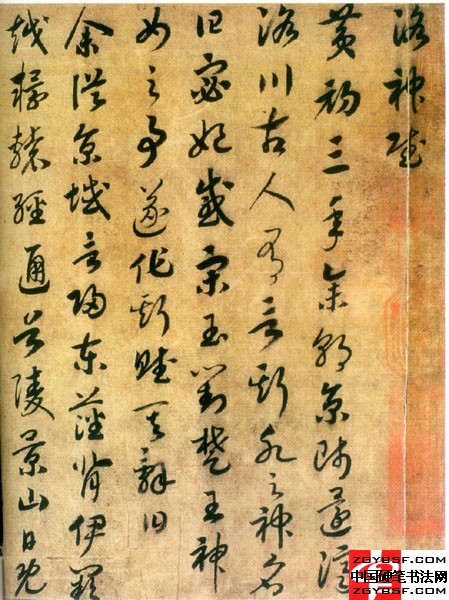 洛神賦
黄初三年余朝京師還濟
洛川古人有言斯水之神名
曰宓妃感宋玉對楚王神
女之事遂作斯賦其辭曰
余從京域言歸東藩背伊闕
越轘轅經通谷陵景山日既
ZGYBSF.COM
中国硬笔书法网
ZGYBSF.COM